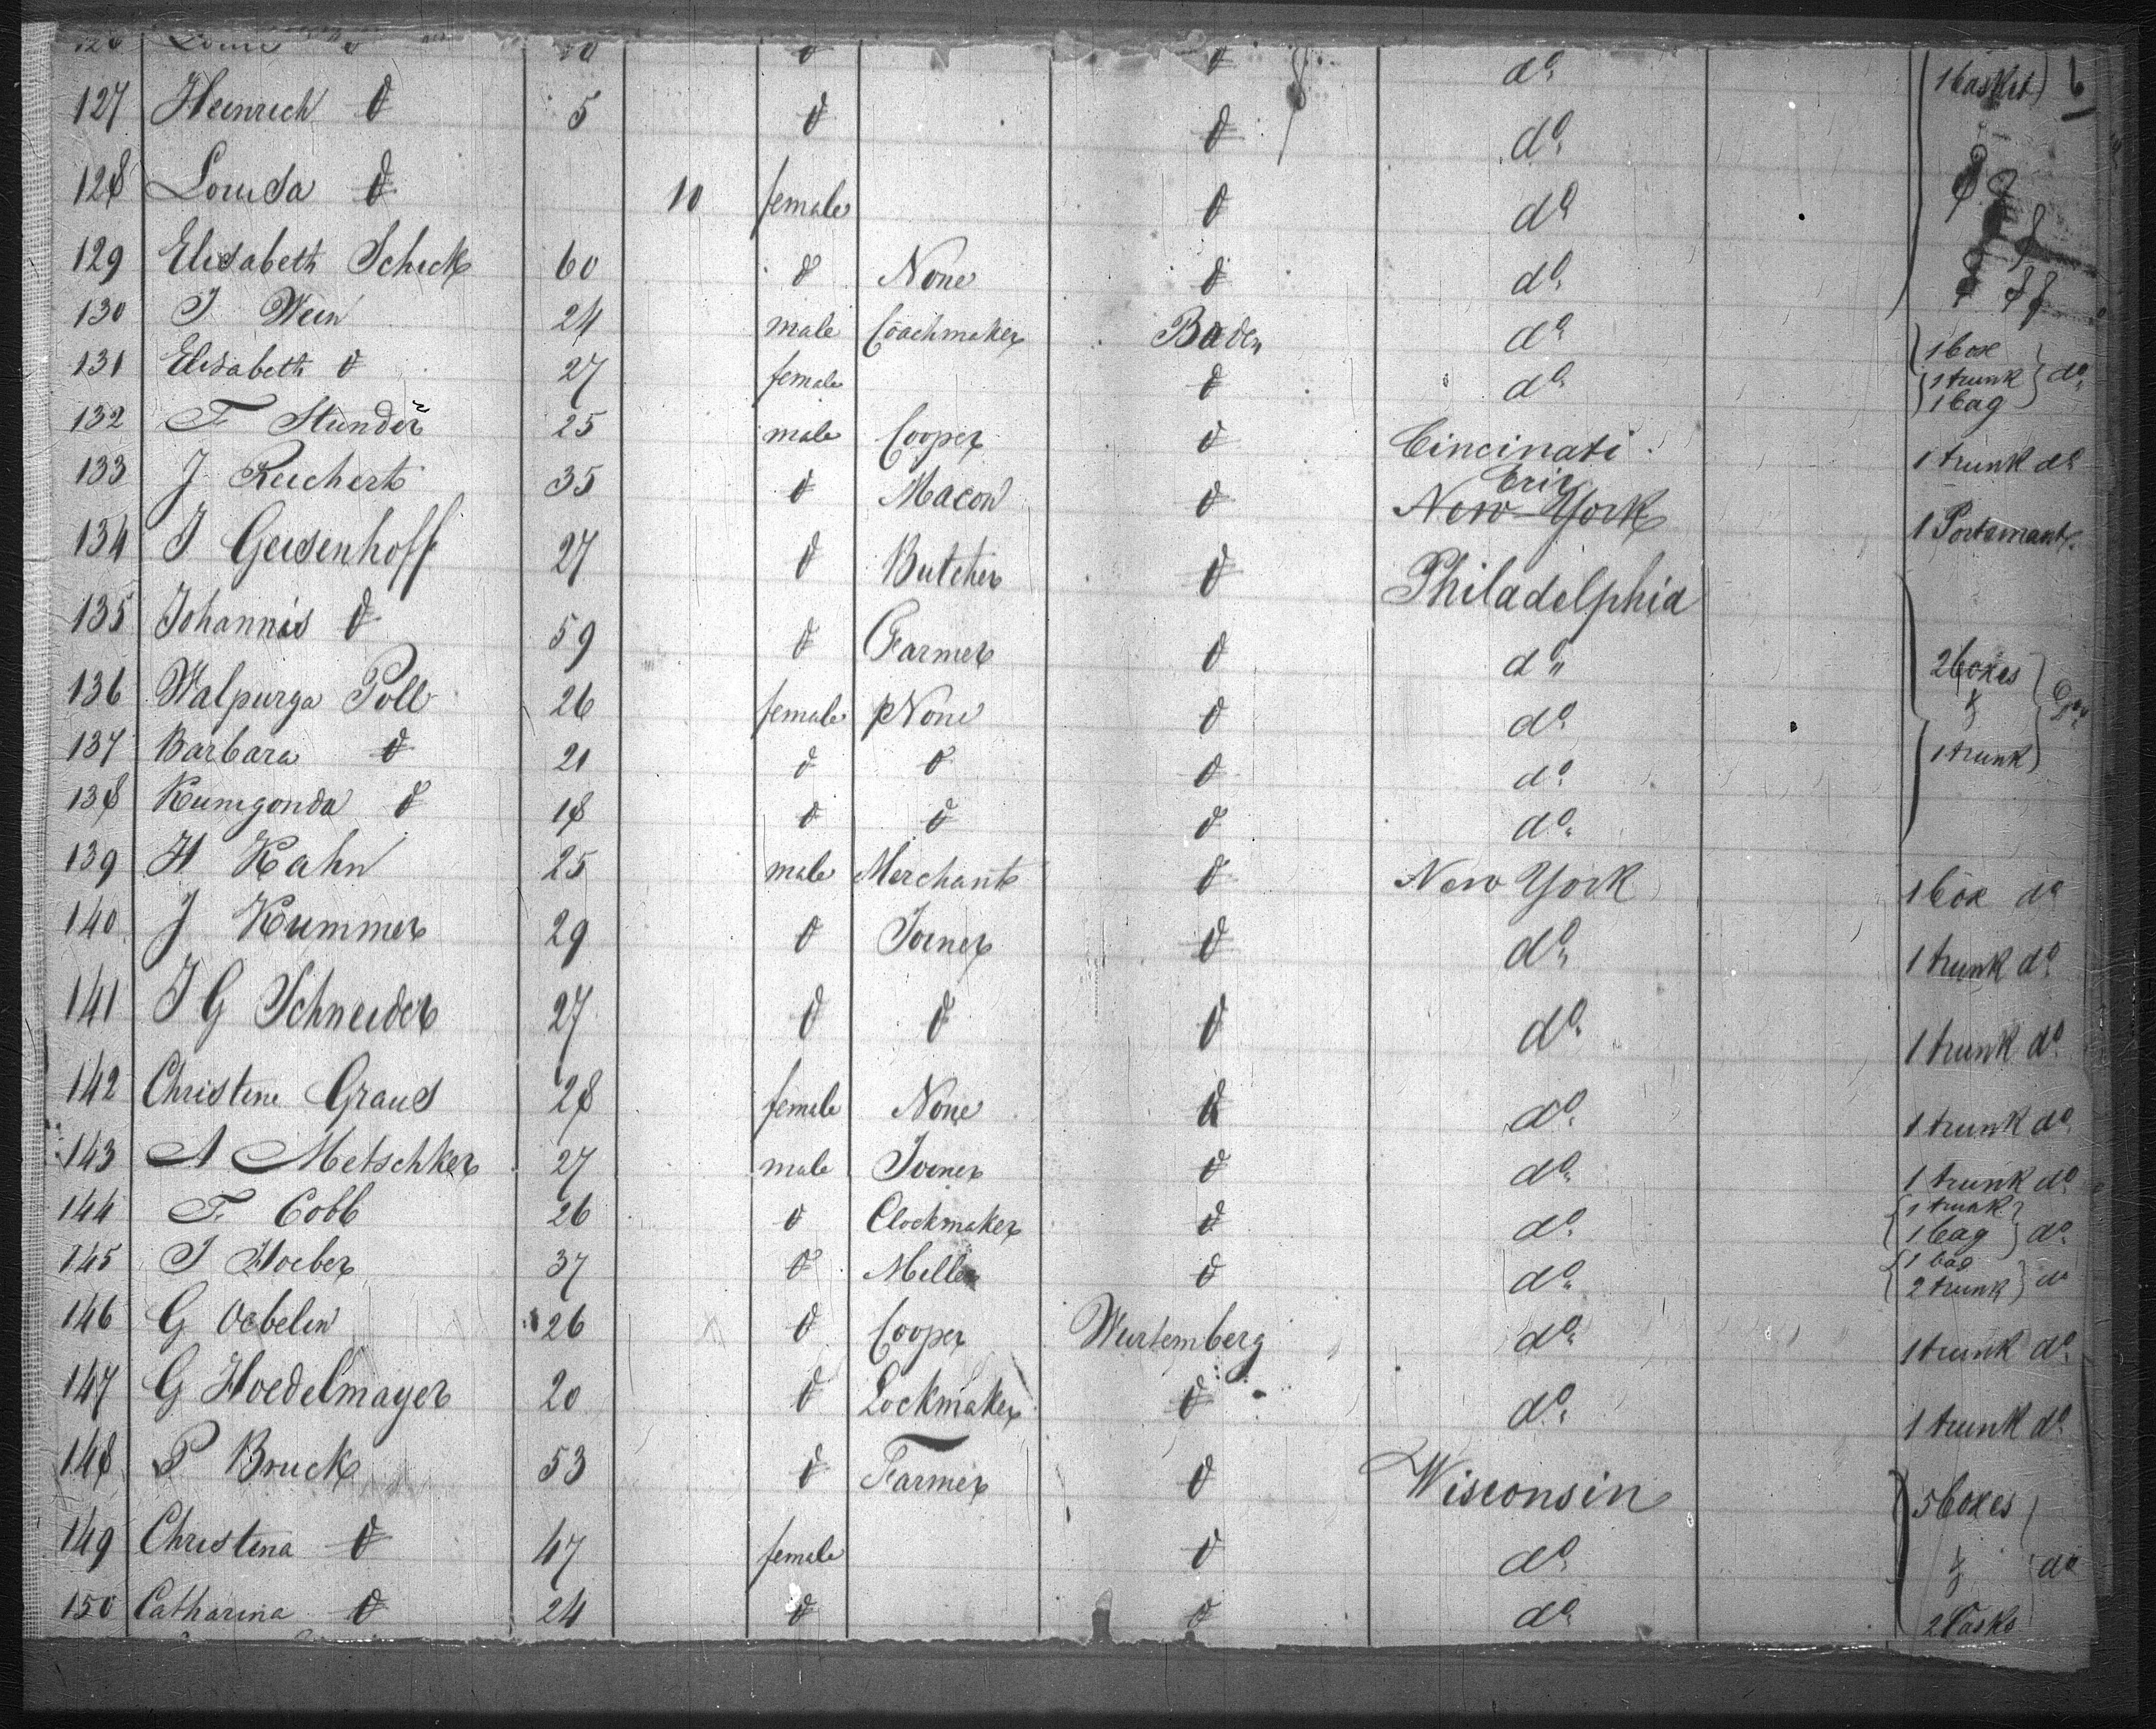 126 Louis do 10 do do do 1 basket 6
127 Heinrich do 5 do do do
128 Louisa do 10 female do do
129 Elisabeth Schick 60 do None do do
130 J Wein 24 male Coachmaker Baden do 1 box
131 Elisabeth do 27 female do do 1 trunk do
1 bag
132 F. Stunder 25 male Cooper do Cincinati 1 trunk do
Erie
133 J. Reichert 35 do Macon do New York 1 Portemant.
134 J Geisenhoff 27 do Butcher do Philadelphia
135 Johannis do 59 do Farmer do do
136 Walpurga Poll 26 female None do do 2 boxes &
137 Barbara do 21 do do do do 1 trunk
138 Kunigonda do 18 do do do do
139 H Kahn 25 male Merchant do New York 1 box do
140 J Kummer 29 do Joiner do do 1 trunk do
141 J G Schneider 27 do do do do 1 trunk do
142 Christine Graus 28 female None do do 1 trunk do
143 A Metschker 27 male Joiner do do 1 trunk do
1 trunk
144 F. Cobb 26 do Clockmaker do do 1 bag do
1 bag
145 J Hoeber 37 do Miller do do 2 trunk do
146 G Oebelin 26 do Cooper Wurtemberg do 1 trunk do
147 G Hoedelmayer 20 do Lockmaker do do 1 trunk do
148 P Bruck 53 do Farmer do Wisconsin 5 boxes
149 Christina do 47 female do do & do
150 Catharina do 24 do do do 2 Casks